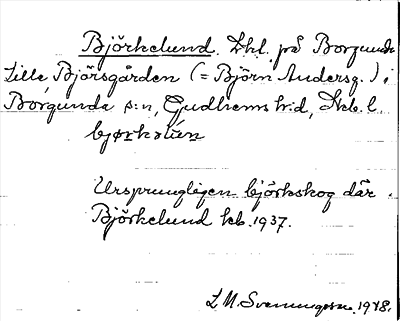 Björkelund. Lhl. på Borgunda
Lilla Björsgården (= Björn Andersg.) i
Borgunda s:n, Gudhems h:d, Skb. l.
bjørkalún
Ursprungligen björkskog där.
Björkelund kb. 1937.
L. M. Svenungsson. 1948.